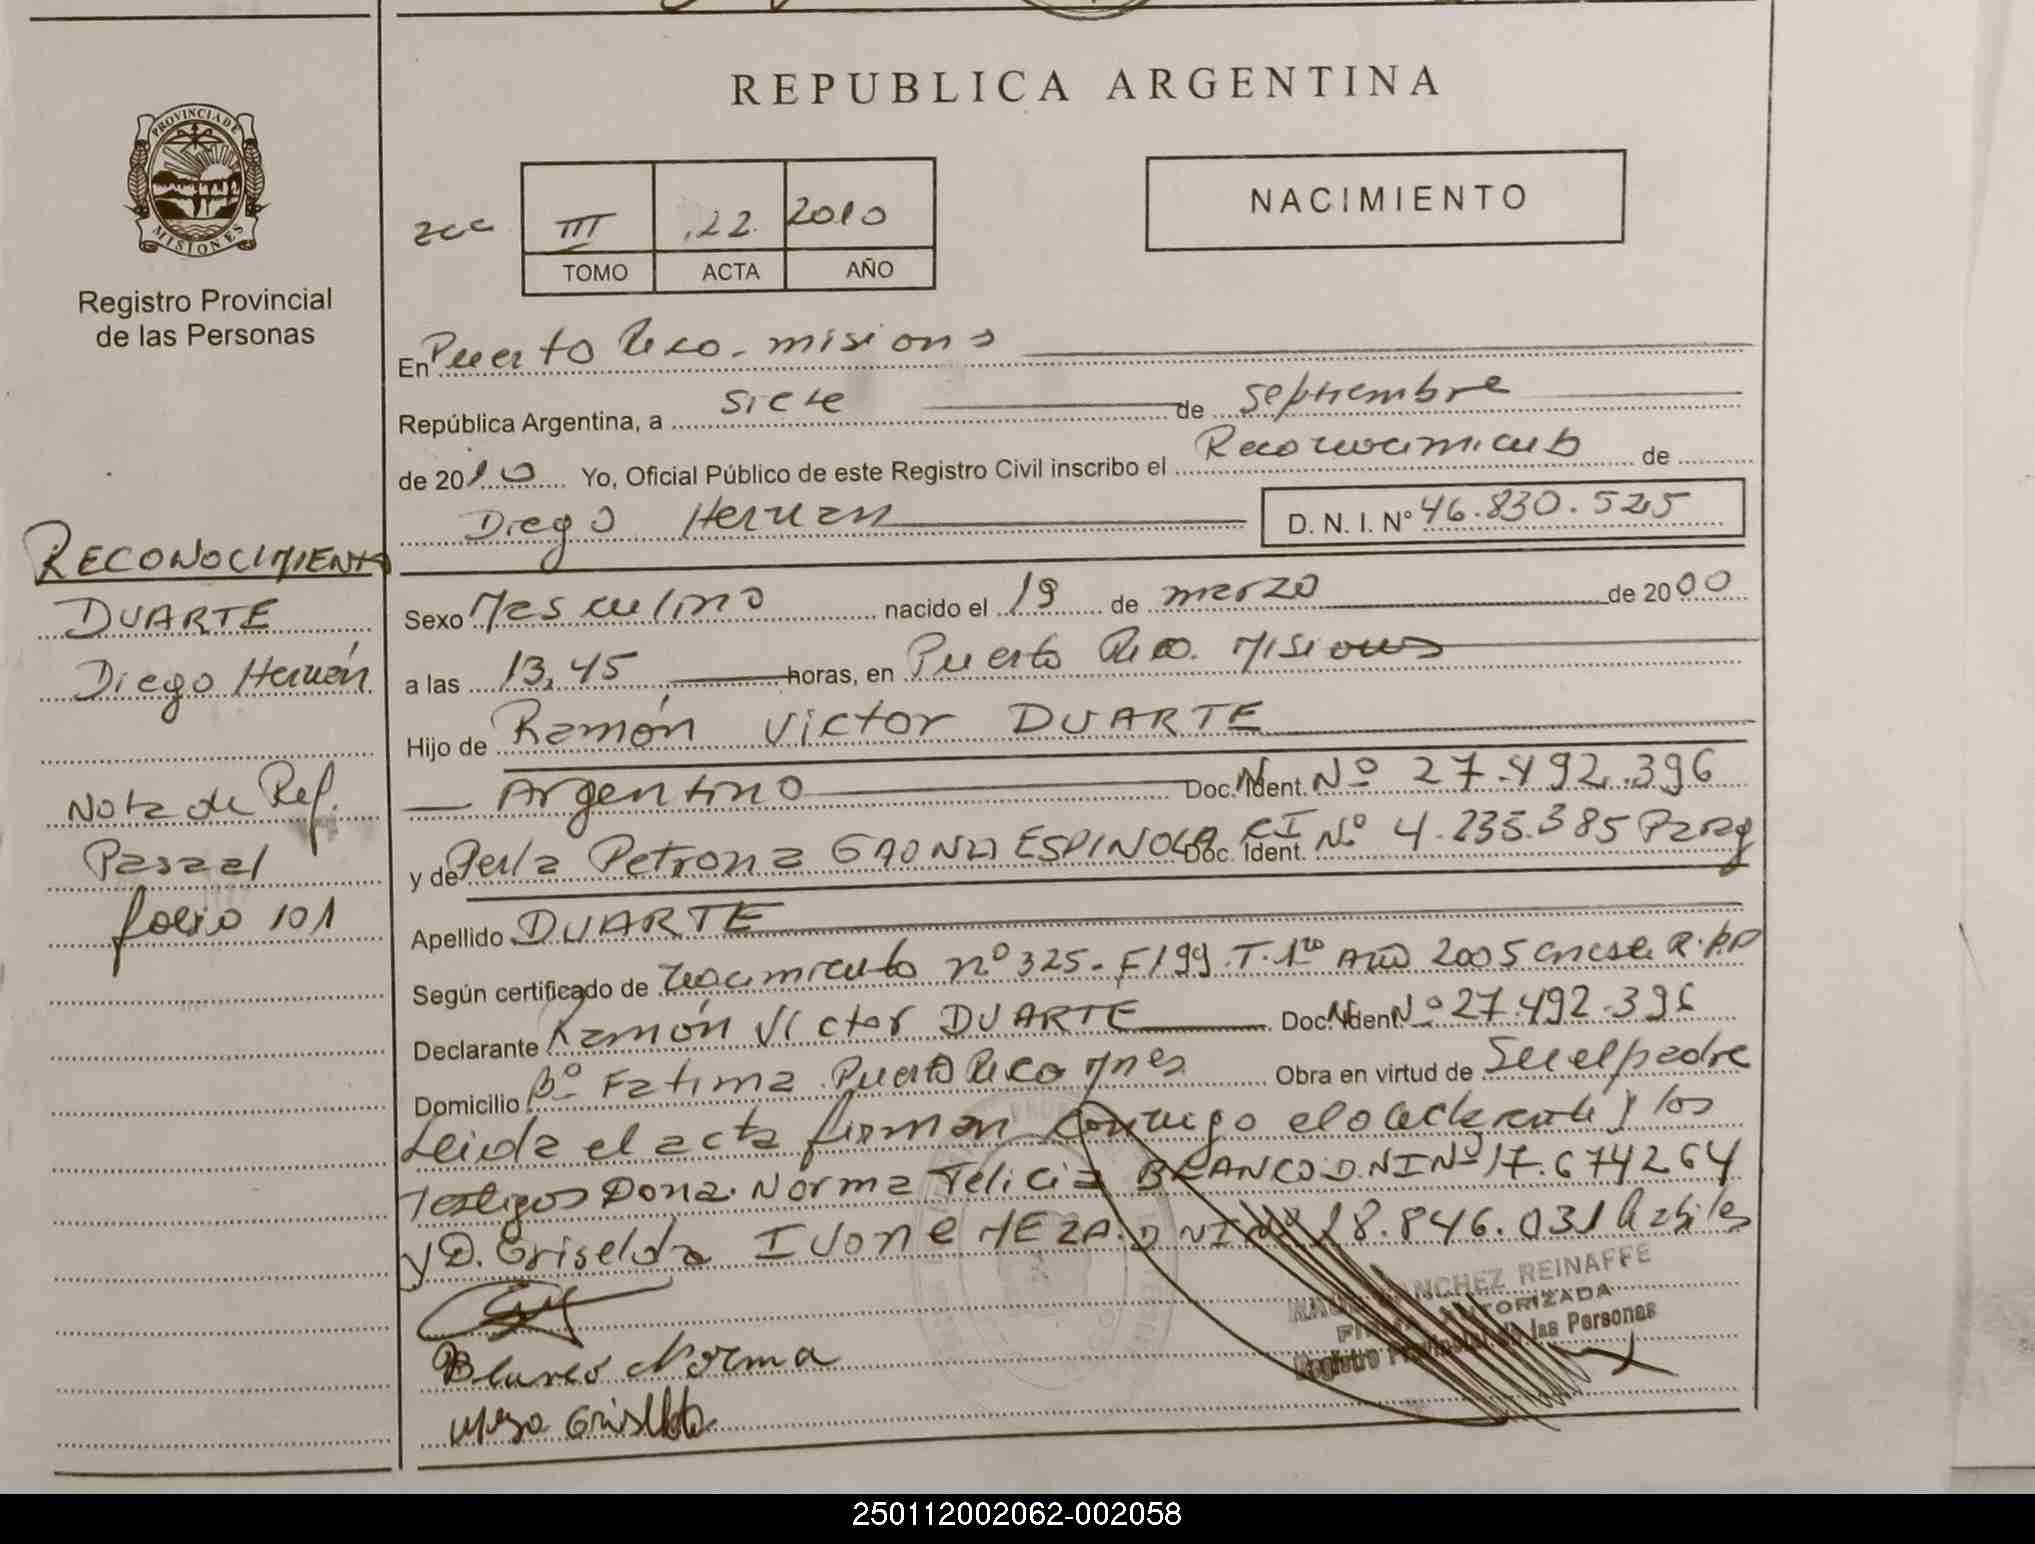 REPUBLICA ARGENTINA
PROVINCIA DE
MISIONES
Registro Provincial
de las Personas
III 122 2010
TOMO ACTA AÑO
NACIMIENTO
En Puerto Rico - misiones
República Argentina, a siete de septiembre
de 2010 Yo, Oficial Público de este Registro Civil inscribo el Reconocimiento de
Diego Hernan D. N. I. Nº 46.830.525
Sexo Masculino nacido el 19 de marzo de 2000
a las 13,45 horas, en Puerto Rico. Misiones
Hijo de Ramón Victor DUARTE
Argentino Doc. Ident. Nº 27.492.396
y de Perla Petrona GAONA ESPINOLA Doc. Ident. CI Nº 4.235.385 Parag
Apellido DUARTE
Según certificado de nacimiento nº 325 - F 199 . T. 1ro Año 2005 en este R.P.P
Declarante Ramón Victor DUARTE Doc. Ident. Nº 27.492.396
Domicilio Bº Fatima Puerto Rico Mnes Obra en virtud de Ser el padre
Leida el acta firman conmigo el declarante y los
Testigos Doña Norma Felicia BLANCO D.NI Nº 17.674264
y D. Griselda Ivone MEZA. D NI Nº 18.846.031 habiles
SANCHEZ REINAFFE
FIRMA AUTORIZADA
Registro Provincial de las Personas
Blanco Norma
Meza Griselda
RECONOCIMIENTO
DUARTE
Diego Hernán
Nota de Ref.
Pasa al
folio 101
250112002062-002058